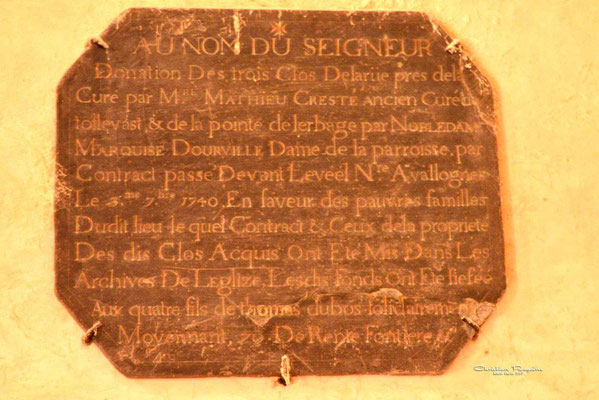 AU NON DU SEIGNEUR
Donation Des trois Clos Delarüe pres dela
Cure par M.RE MATHIEU CRESTE ANCIEN Cure de
tollevast & de la pointe de lerbage par NOBLE DAME
MARQUISE DOURVILLE Dame de la parroisse, par
Contract passé Devant Leveel N.re A vallognes
Le 3.me 7.bre 1740 En faveur des pauvres familles
Dudit lieu le quel Contract & Ceux dela proprieté
Des dis Clos Acquis Ont Eté Mis Dans Les
Archives De Leglize, Lesdis fonds Ont Eté fiefés
Aux quatre fils de thomas dubos solidairement
Moyennant, 70. De Rente Fontiere
Christian